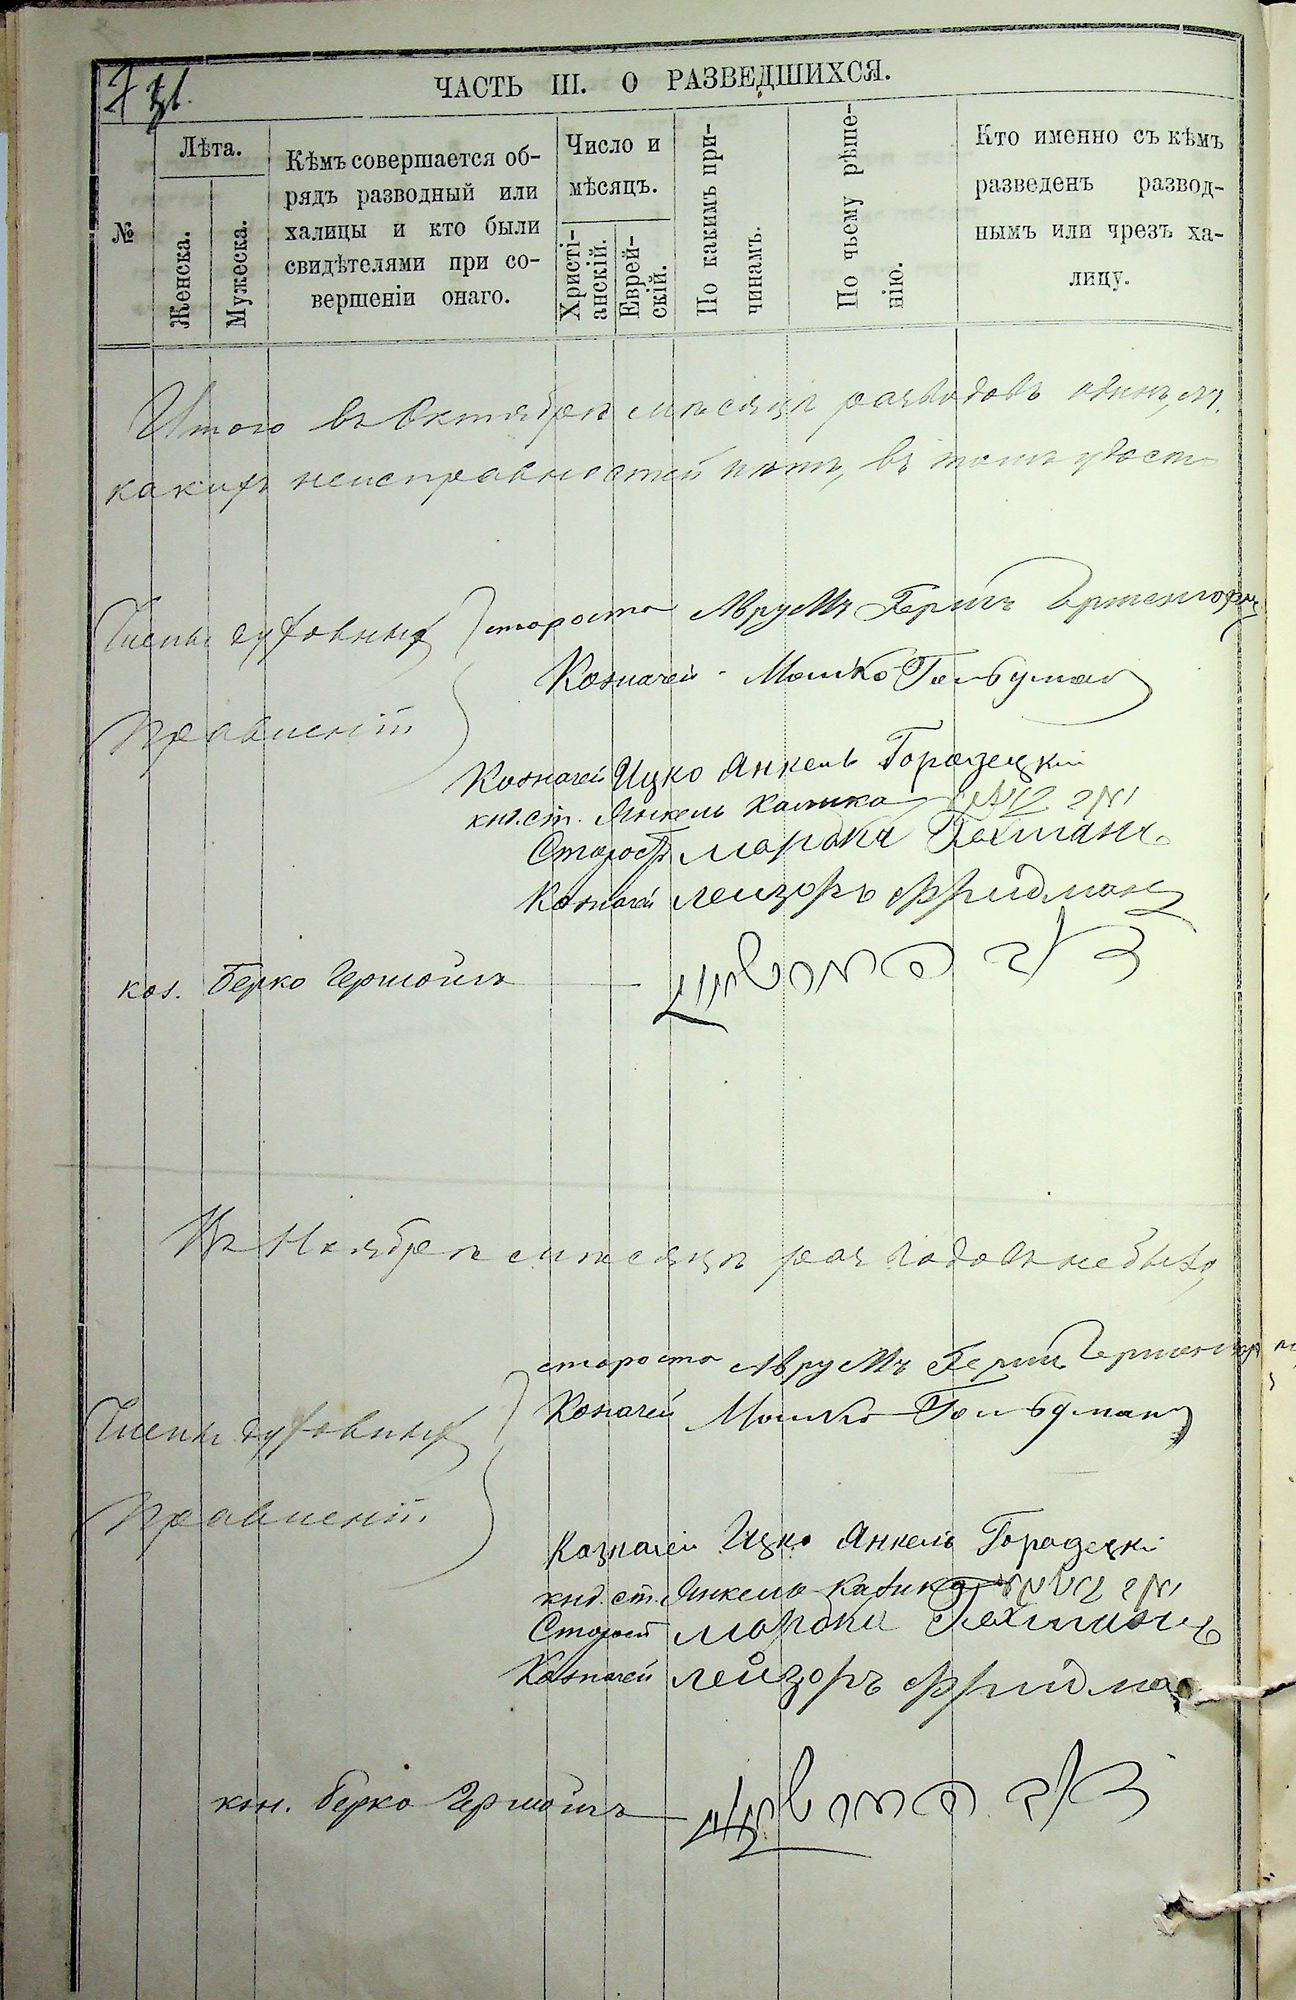 ЧАСТЬ III. О РАЗВЕДШИХСЯ.
№
Лѣта.
Женска.
Мужеска.
Кѣмъ совершается об-
рядъ разводный или
халицы и кто были
свидѣтелями при со-
вершеніи онаго.
Число и
мѣсяцъ.
Христі-
анскій.
Еврей-
скій.
По какимъ при-
чинамъ.
По чьему рѣше-
нію.
Кто именно съ кѣмъ
разведенъ развод-
нымъ или чрезъ ха-
лицу.
Итого въ Октябрѣ мѣсяцѣ разводовъ одинъ,
какихъ неисправностей нѣтъ, въ томъ удост
Члены духовныхъ
Правленій.
староста Аврумъ Гершъ
Казначей - Мошко Гольдман
Казначей Ицко Янкель Горадецкій
кнд. ст. Янкель Калика
Старост Мордко Гохманъ
Казначей Лейзоръ Фридман
каз. Берко Гершойгъ
Въ Ноябрѣ мѣсяцѣ разводовъ не было,
Члены духовныхъ
Правленій.
староста Аврумъ Герш
Казначей Мошко Гольдман
Казначей Ицко Янкель Горадецкі
кнд. ст. Янкель Калика
Старост Мордко Гохманъ
Казначей Лейзоръ Фридма
каз. Берко Гершойгъ